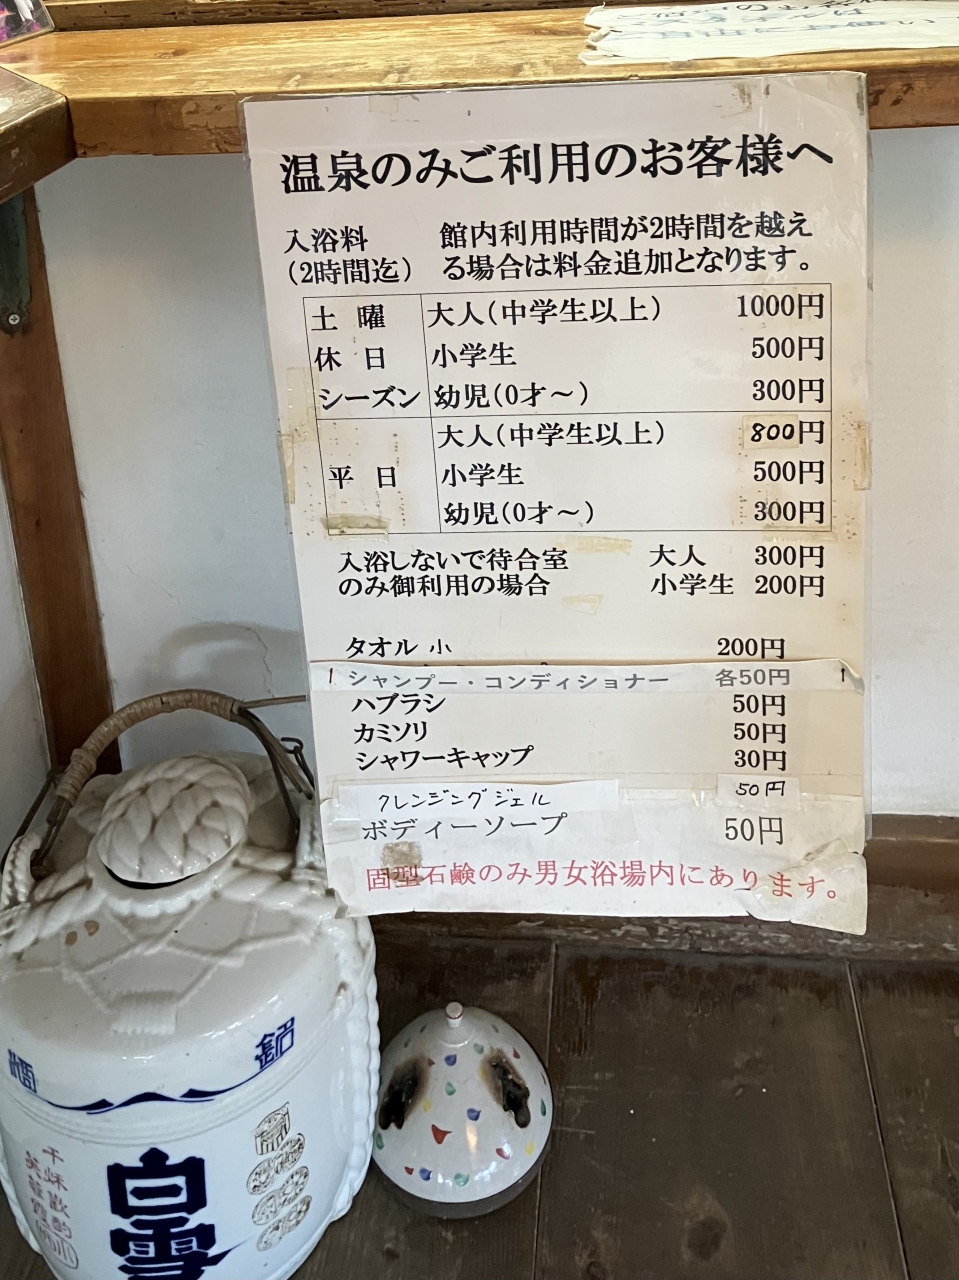 温泉のみご利用のお客様へ
入浴料 館内利用時間が2時間を越え
(2時間迄) る場合は料金追加となります。
土曜 大人(中学生以上) 1000円
休日 小学生 500円
シーズン 幼児(0才～) 300円
大人(中学生以上) 800円
平日 小学生 500円
幼児(0才～) 300円
入浴しないで待合室 大人 300円
のみ御利用の場合 小学生 200円
タオル 小 200円
シャンプー・コンディショナー 各50円
ハブラシ 50円
カミソリ 50円
シャワーキャップ 30円
クレンジングジェル 50円
ボディーソープ 50円
固型石鹸のみ男女浴場内にあります。
酒 銘
白雪